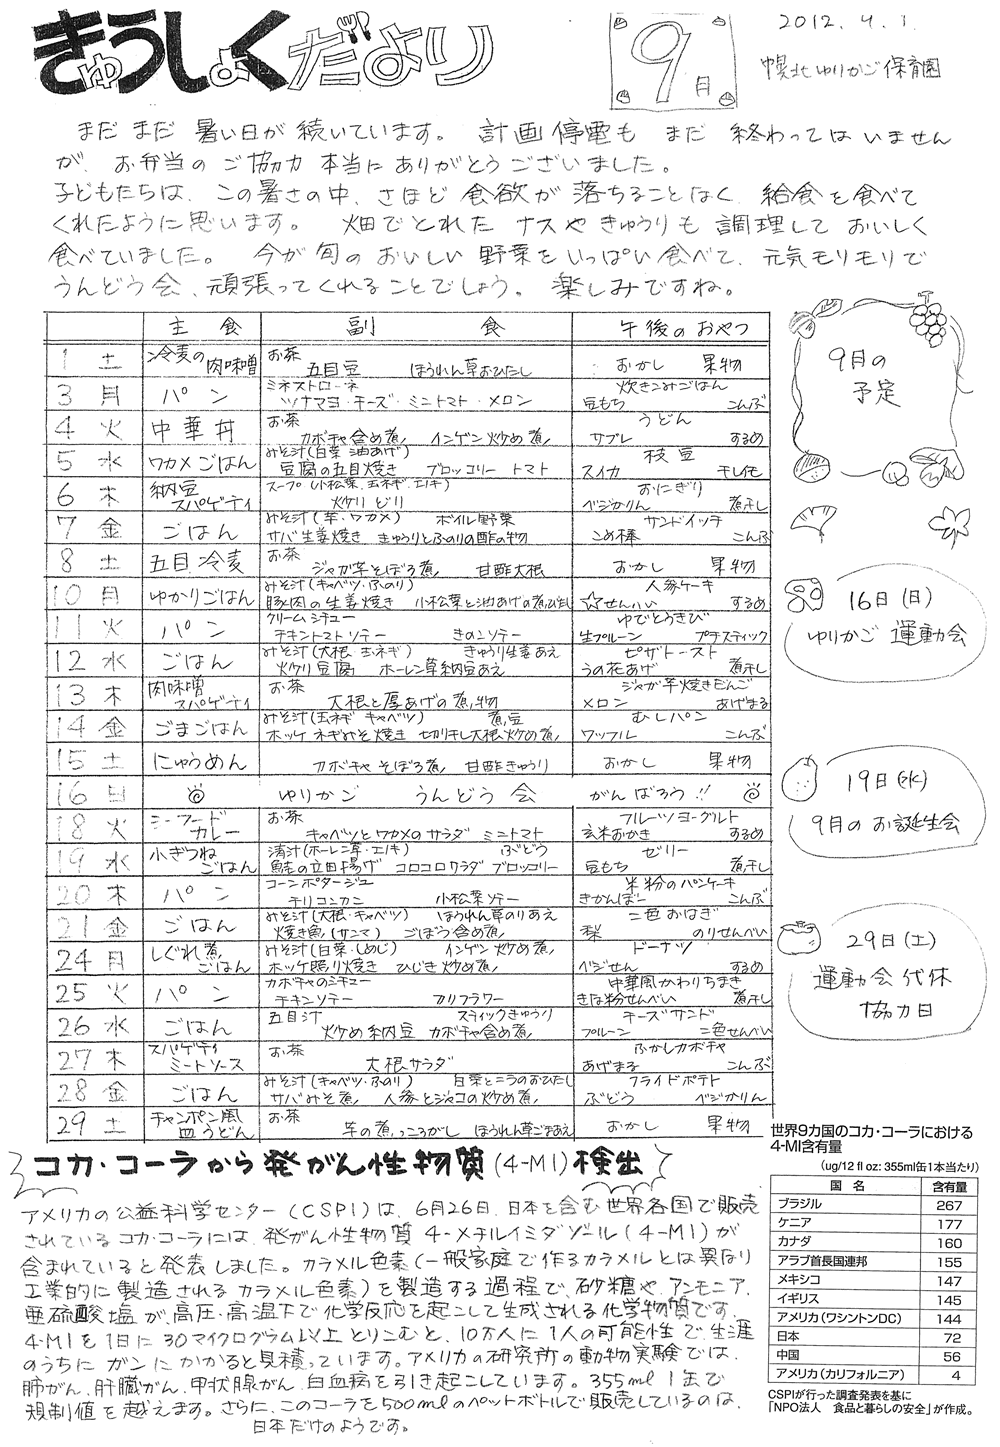 きゅうしょくだより
9月
2012.9.1.
幌北ゆりかご保育園
まだまだ暑い日が続いています。計画停電もまだ終わってはいません
が、お弁当のご協力本当にありがとうございました。
子どもたちは、この暑さの中、さほど食欲が落ちることなく、給食を食べて
くれたように思います。畑でとれたナスやきゅうりも調理しておいしく
食べていました。今が旬のおいしい野菜をいっぱい食べて、元気モリモリで
うんどう会、頑張ってくれることでしょう。楽しみですね。
主食 副食 午後のおやつ
1 土 冷麦の肉味噌 お茶 五目豆 ほうれん草おひたし おかし 果物
3 月 パン ミネストローネ ツナマヨ・チーズ・ミニトマト・メロン 炊きこみごはん 豆もち こんぶ
4 火 中華丼 お茶 カボチャ含め煮 インゲン炒め煮 うどん サブレ するめ
5 水 ワカメごはん みそ汁(白菜 油あげ) 豆腐の五目焼き ブロッコリー トマト 枝豆 スイカ 干し芋
6 木 納豆スパゲティ スープ(小松菜、玉ネギ、エノキ) 炒り どり おにぎり ベジかりん 煮干し
7 金 ごはん みそ汁(芋・ワカメ) ボイル野菜 サバ生姜焼き きゅうりとふのりの酢の物 サンドイッチ こめ棒 こんぶ
8 土 五目冷麦 お茶 ジャガ芋そぼろ煮 甘酢大根 おかし 果物
10 月 ゆかりごはん みそ汁(キャベツ・ふのり) 豚肉の生姜焼き 小松菜と油あげの煮びたし 人参ケーキ ☆せんべい するめ
11 火 パン クリームシチュー チキントマトソテー きのこソテー ゆでとうきび 生プルーン プチスティック
12 水 ごはん みそ汁(大根・玉ネギ) きゅうり生姜あえ 炒り豆腐 ホーレン草納豆あえ ピザトースト うの花あげ 煮干し
13 木 肉味噌スパゲティ お茶 大根と厚あげの煮物 ジャガ芋焼きだんご メロン あげまる
14 金 ごまごはん みそ汁(玉ネギ キャベツ) 煮豆 ホッケ ネギみそ焼き 切り干し大根炒め煮 むしパン ワッフル こんぶ
15 土 にゅうめん カボチャそぼろ煮 甘酢きゅうり おかし 果物
16 日 ゆりかご うんどう会 がんばろう!!
18 火 シーフードカレー お茶 キャベツとワカメのサラダ ミニトマト フルーツヨーグルト 玄米おかき するめ
19 水 小ぎつねごはん 清汁(ホーレン草・エノキ) ぶどう 鮭の立田揚げ コロコロサラダ ブロッコリー ゼリー 豆もち 煮干し
20 木 パン コーンポタージュ チリコンカン 小松菜ソテー 米粉のパンケーキ きかんぼー こんぶ
21 金 ごはん みそ汁(大根・キャベツ) ほうれん草のりあえ 焼き魚(サンマ) ごぼう含め煮 二色おはぎ 梨 のりせんべい
24 月 しぐれ煮ごはん みそ汁(白菜・しめじ) インゲン炒め煮 ホッケ照り焼き ひじき炒め煮 ドーナツ ベジせん するめ
25 火 パン カボチャのシチュー チキンソテー カリフラワー 中華風かわりちまき きな粉せんべい 煮干し
26 水 ごはん 五目汁 スティックきゅうり 炒め納豆 カボチャ含め煮 チーズサンド プルーン 二色せんべい
27 木 スパゲティミートソース お茶 大根サラダ ふかしカボチャ あげまる こんぶ
28 金 ごはん みそ汁(キャベツ・ふのり) 白菜とニラのおひたし サバみそ煮 人参とジャコの炒め煮 フライドポテト ぶどう ベジかりん
29 土 チャンポン風皿うどん お茶 芋の煮っころがし ほうれん草ごまあえ おかし 果物
9月の
予定
16日(日)
ゆりかご 運動会
19日(水)
9月のお誕生会
29日(土)
運動会代休
協力日
コカ・コーラから発がん性物質(4-MI)検出
アメリカの公益科学センター(CSPI)は、6月26日、日本を含む世界各国で販売
されているコカ・コーラには、発がん性物質4-メチルイミダゾール(4-MI)が
含まれていると発表しました。カラメル色素(一般家庭で作るカラメルとは異なり
工業的に製造されるカラメル色素)を製造する過程で、砂糖や、アンモニア、
亜硫酸塩が、高圧・高温下で化学反応を起こして生成される化学物質です。
4-MIを1日に30マイクログラム以上とりこむと、10万人に1人の可能性で、生涯
のうちにガンにかかると見積っています。アメリカの研究所の動物実験では、
肺がん、肝臓がん、甲状腺がん、白血病を引き起こしています。355ml 1本で
規制値を越えます。さらに、このコーラを500mlのペットボトルで販売しているのは、
日本だけのようです。
世界9カ国のコカ・コーラにおける
4-MI含有量
(ug/12 fl oz: 355ml缶1本当たり)
国名 含有量
ブラジル 267
ケニア 177
カナダ 160
アラブ首長国連邦 155
メキシコ 147
イギリス 145
アメリカ(ワシントンDC) 144
日本 72
中国 56
アメリカ(カリフォルニア) 4
CSPIが行った調査発表を基に
「NPO法人 食品と暮らしの安全」が作成。